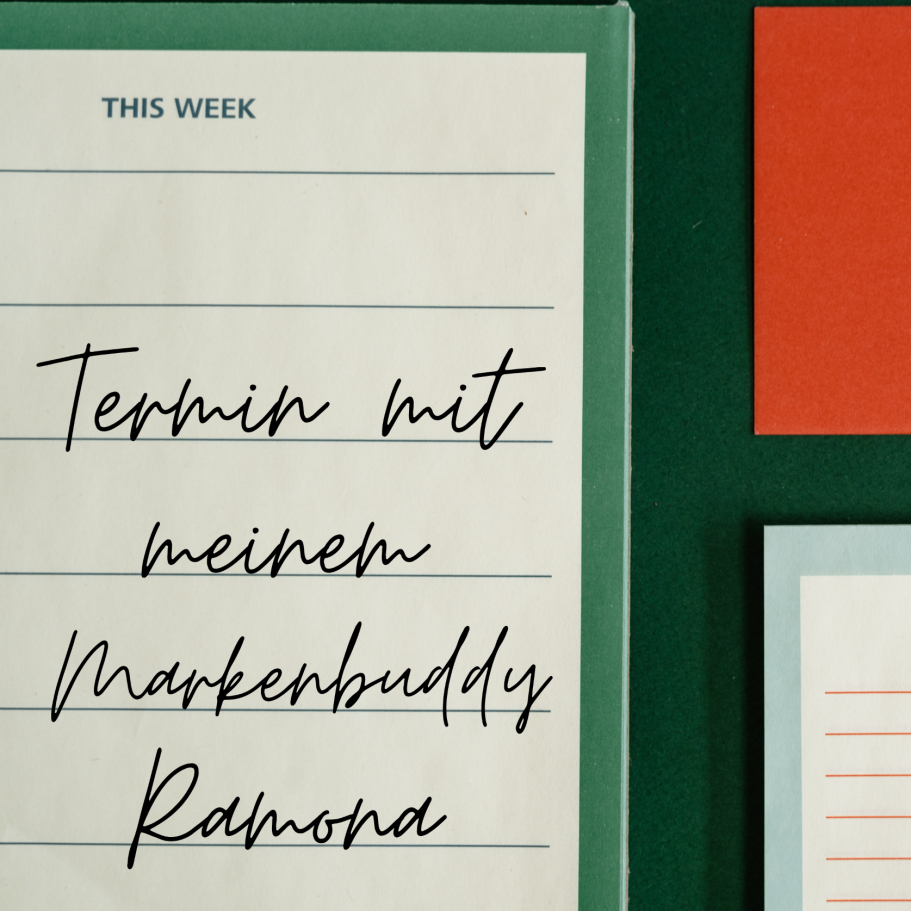 THIS WEEK
Termin mit
meinem
Markenbuddy
Ramona